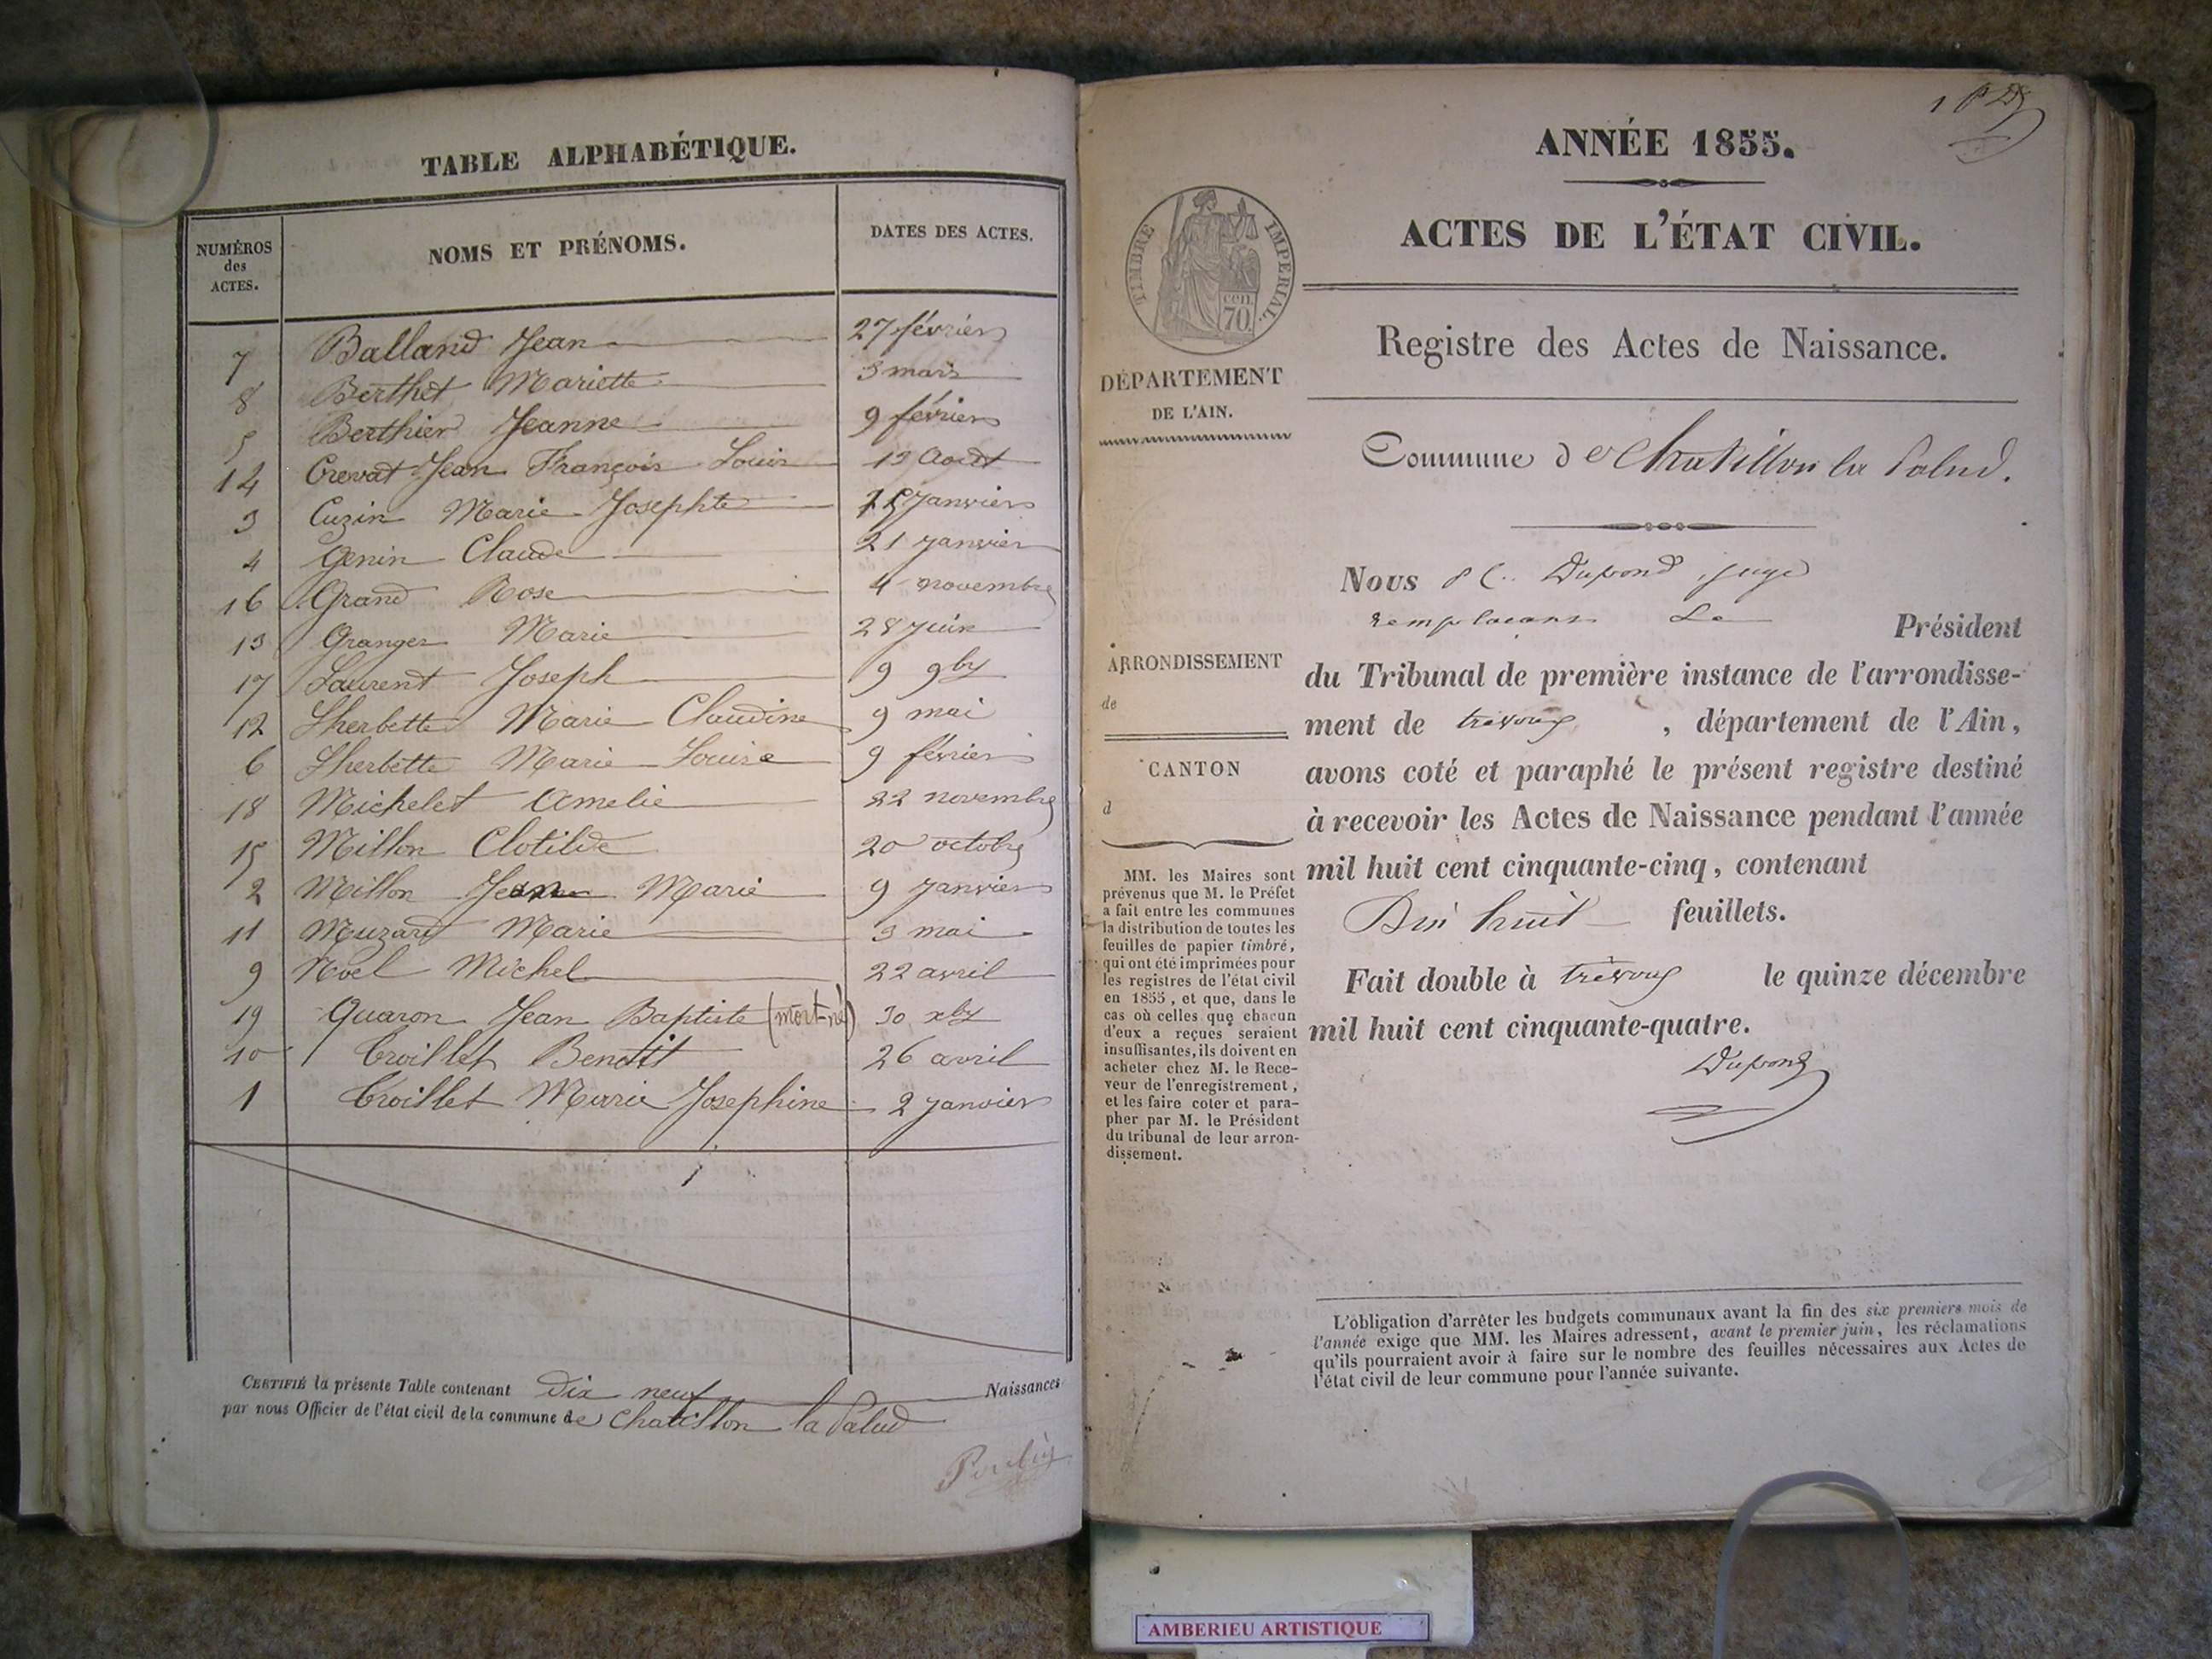 TABLE ALPHABÉTIQUE.
NUMÉROS des ACTES. NOMS ET PRÉNOMS. DATES DES ACTES.
7 Balland Jean 27 février
8 Berthet Mariette 3 mars
5 Berthier Jeanne 9 février
14 Crevat Jean François Louis 12 Août
3 Cuzin Marie Josephte janvier
4 Genin Claude 21 janvier
16 Grand Rose 4 novembre
13 Granger Marie 28 juin
17 Laurent Joseph 9 9by
12 Lherbette Marie Claudine 9 mai
6 Lherbette Marie Louise 9 février
18 Michelet Amelie 22 novembre
15 Millon Clotilde 20 octobre
2 Millon Jean Marie 9 janvier
11 Muzard Marie 3 mai
9 Noel Michel 22 avril
19 Quaron Jean Baptiste (mort-né) 30 xby
10 Troillet Benoit 26 avril
1 Troillet Marie Josephine 2 janvier
CERTIFIÉ la présente Table contenant Dix neuf Naissances
par nous Officier de l'état civil de la commune de Chatillon la Palud
1
ANNÉE 1855.
ACTES DE L'ÉTAT CIVIL.
TIMBRE IMPERIAL
cen. 70
Registre des Actes de Naissance.
DÉPARTEMENT
DE L'AIN.
Commune de Chatillon la Palud.
Nous Dupond juge
remplacant Le Président
ARRONDISSEMENT
de
du Tribunal de première instance de l'arrondisse-
ment de trevoux, département de l'Ain,
CANTON
d
avons coté et paraphé le présent registre destiné
à recevoir les Actes de Naissance pendant l'année
mil huit cent cinquante-cinq, contenant
Dix huit feuillets.
Fait double à trevoux le quinze décembre
mil huit cent cinquante-quatre.
Dupond
MM. les Maires sont
prévenus que M. le Préfet
a fait entre les communes
la distribution de toutes les
feuilles de papier timbré,
qui ont été imprimées pour
les registres de l'état civil
en 1855, et que, dans le
cas où celles que chacun
d'eux a reçues seraient
insuffisantes, ils doivent en
acheter chez M. le Rece-
veur de l'enregistrement,
et les faire coter et para-
pher par M. le Président
du tribunal de leur arron-
dissement.
L'obligation d'arrêter les budgets communaux avant la fin des six premiers mois de
l'année exige que MM. les Maires adressent, avant le premier juin, les réclamations
qu'ils pourraient avoir à faire sur le nombre des feuilles nécessaires aux Actes de
l'état civil de leur commune pour l'année suivante.
AMBERIEU ARTISTIQUE